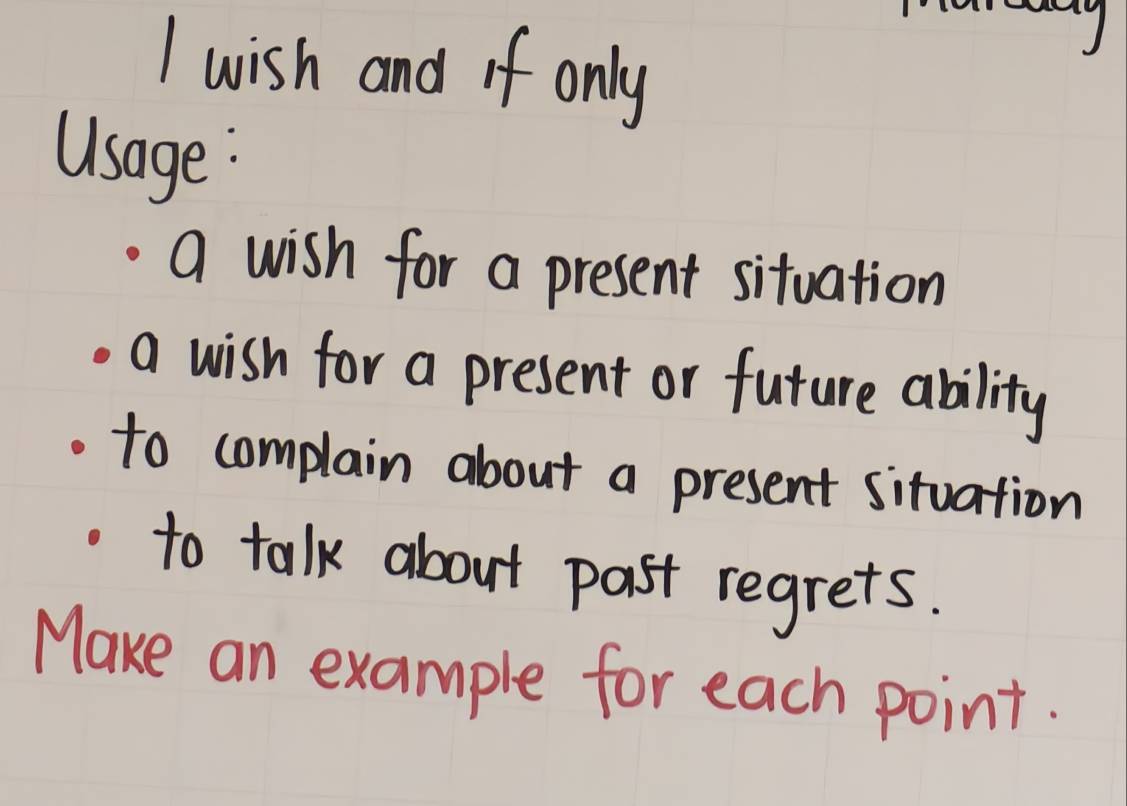 Thursday
I wish and if only
Usage:
• a wish for a present situation
• a wish for a present or future ability
• to complain about a present situation
• to talk about past regrets.
Make an example for each point.